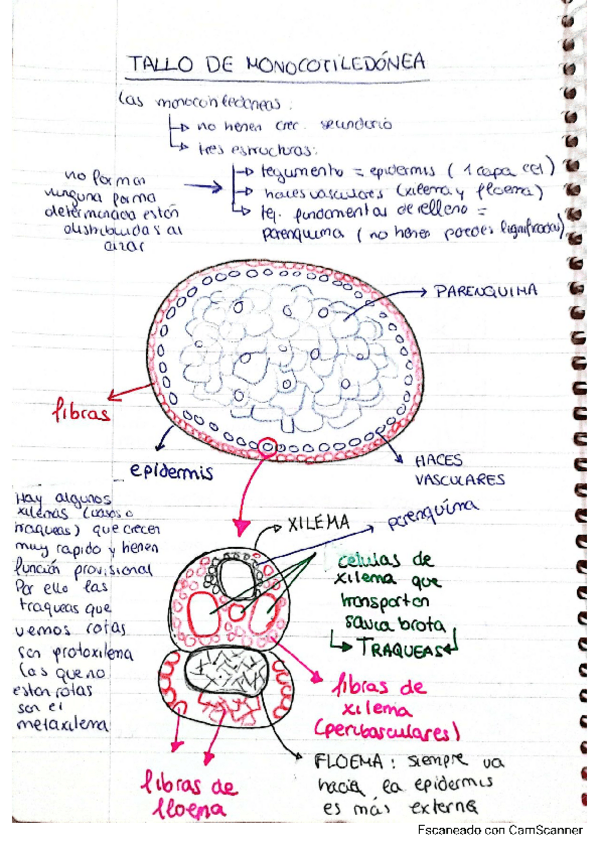 TALLO DE MONOCOTILEDÓNEA
Las monocotiledoneas:
no tienen crec. secundario
tres estructuras:
tegumento = epidermis (1 capa cel)
haces vasculares (xilema y floema)
tej. fundamentas de relleno =
parenquima (no tienen paredes lignificadas)
no forman
ninguna forma
determinada están
distribuidas al
azar
PARENQUIMA
fibras
epidermis
HACES
VASCULARES
Hay algunos
xilemas (vasos o
traqueas) que crecen
muy rapido y tienen
función provisional
Por ello las
traqueas que
vemos rotas
son protoxilema
las que no
estan rotas
son el
metaxilema
XILEMA
parenquima
celulas de
xilema que
transportan
savia brota
TRAQUEAS
fibras de
xilema
(perivasculares)
FLOEMA: siempre va
hacia la epidermis
es más externa
fibras de
floema
Escaneado con CamScanner